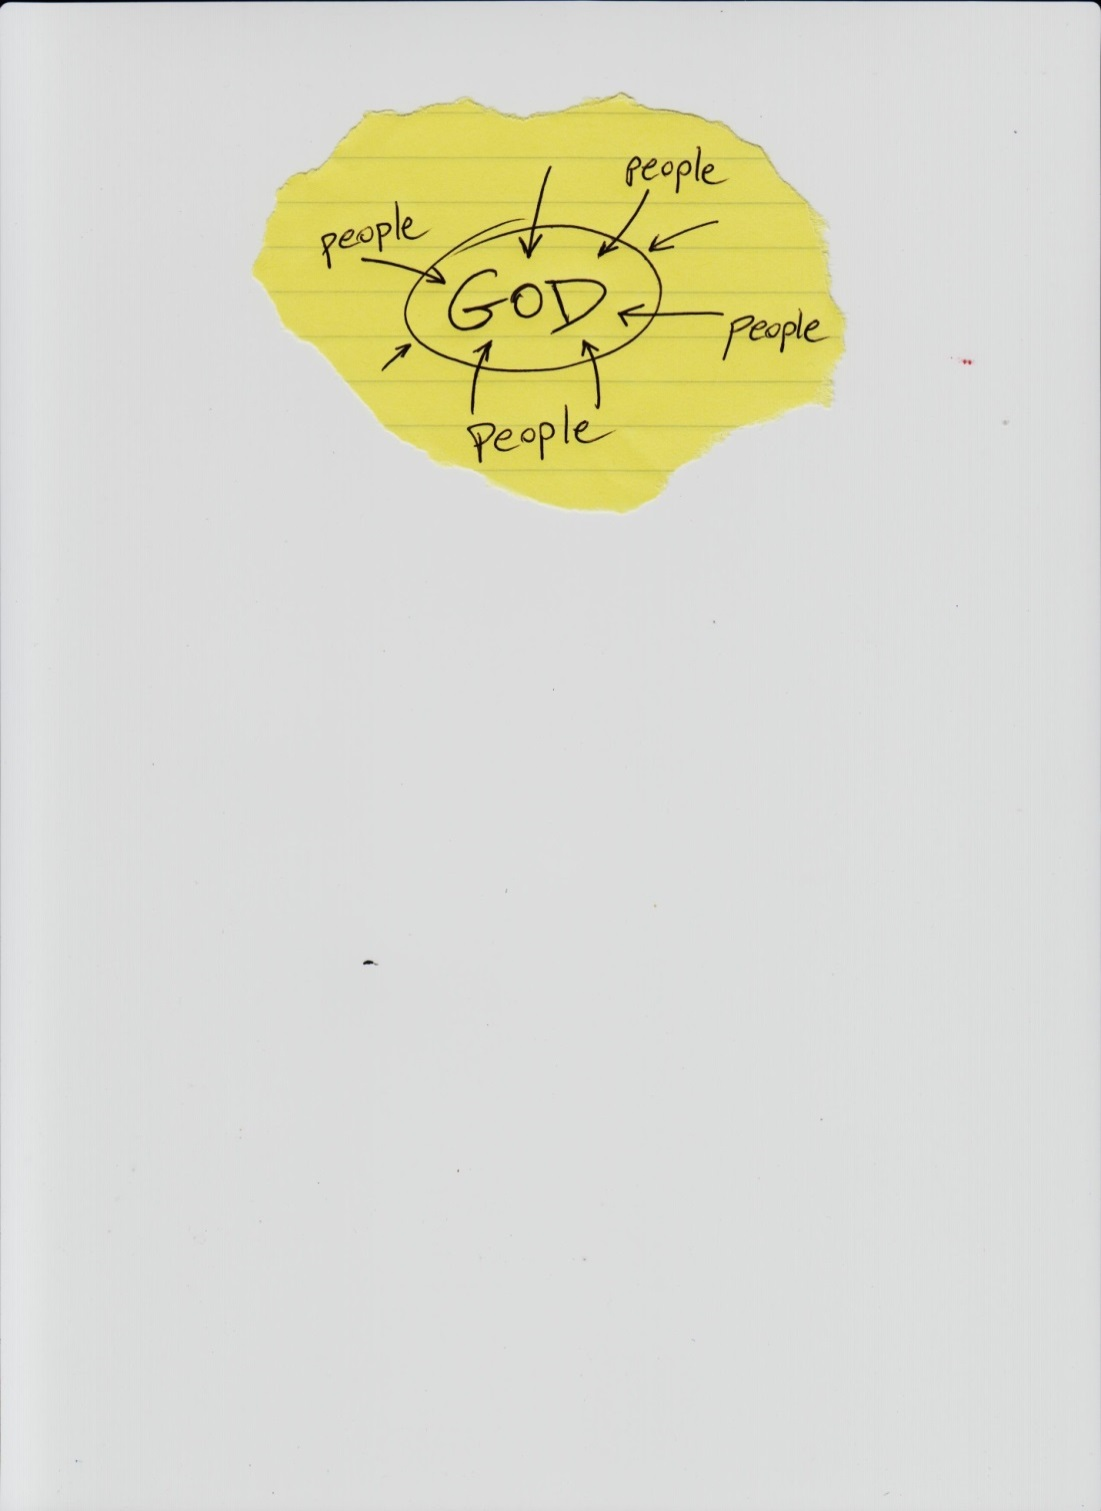 people
people
GOD
people
people